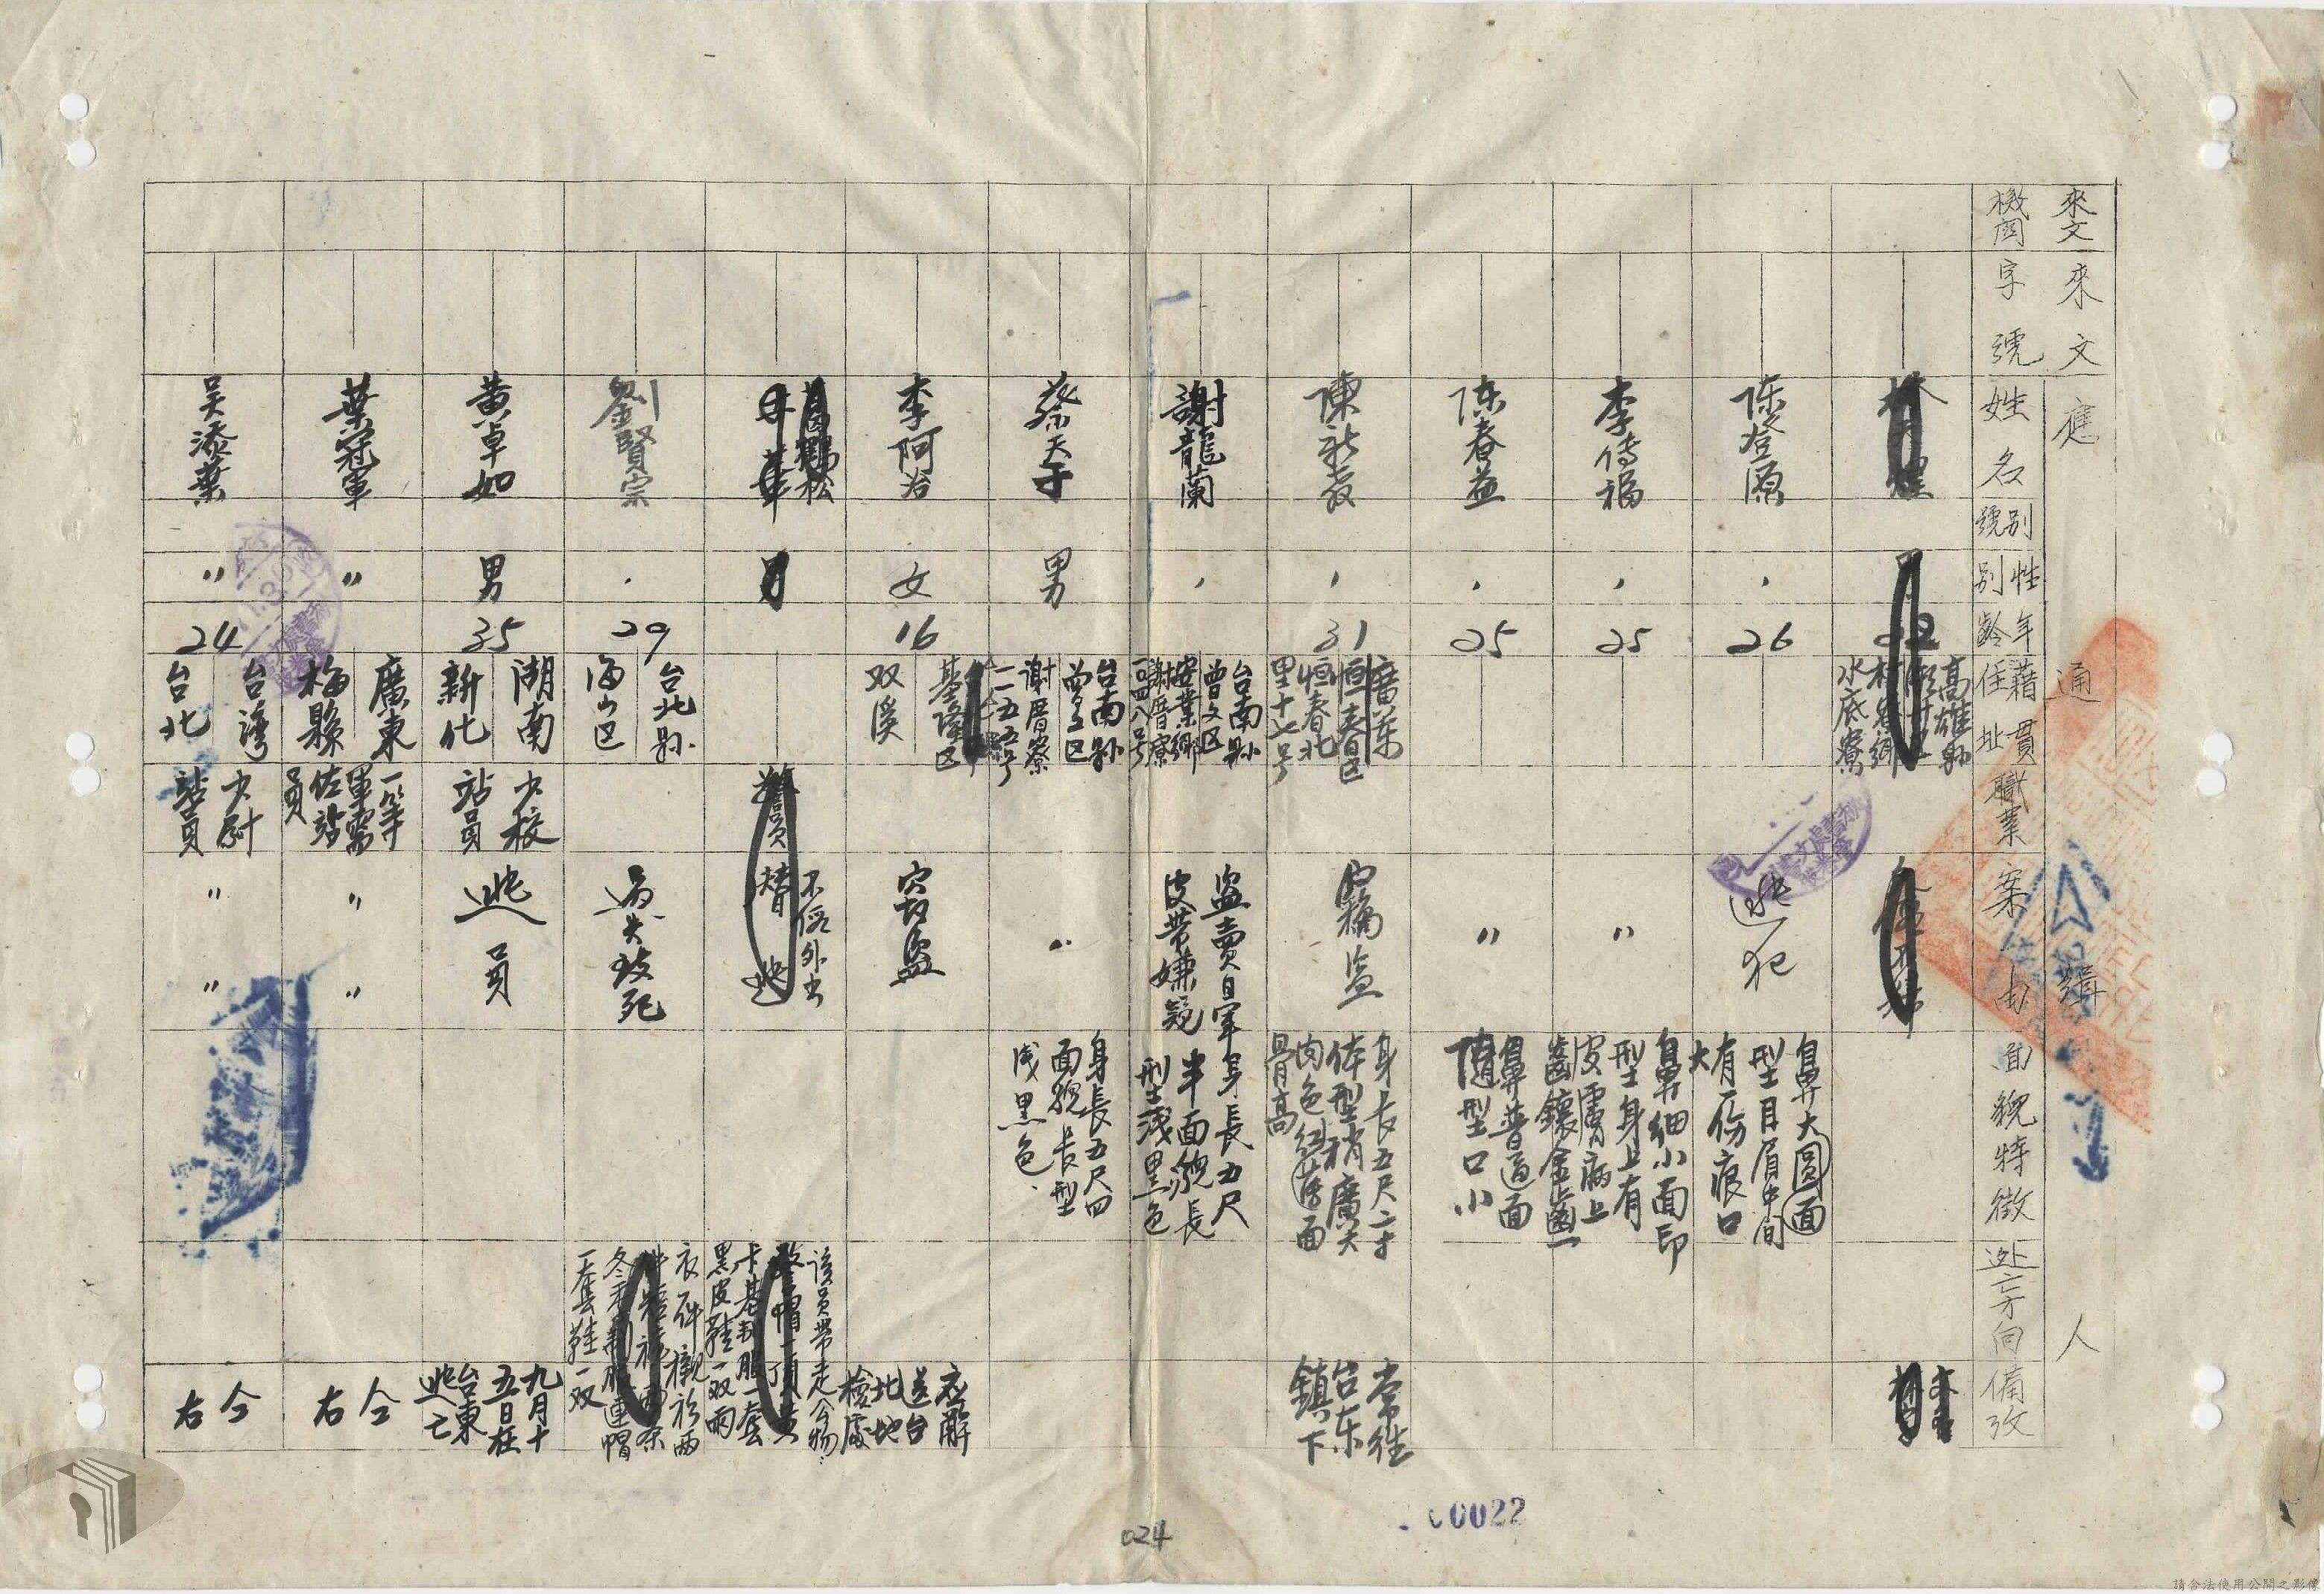 來文機関
來文字號
應通緝人
姓名
別號
性別
年齡
籍貫住址
職業
案由
面貌特徵
逃亡方向
備攷
高雄縣
水底寮
陈登源
26
逃犯
鼻大圓面
型目眉中間
有一伤痕口
大
李傳福
25
〃
鼻細小面印
型身上有
皮膚病上
齒鑲金齒一
陈春益
25
〃
鼻普通面
隨型口小
陳新發
31
廣東
恒春区
恒春北
里十七号
竊盜
身长五尺二寸
体型稍廣大
肉色红蓬面
骨高
常往
台东
鎮下
謝龍蘭
台南縣
曾文区
安業鄉
謝厝寮
一四八号
盜賣日軍
皮带嫌疑
身長五尺
半面貌長
型浅黑色
蔡天子
男
台南縣
曾文区
謝厝寮
二一五五号
〃
身長五尺四
面貌长型
浅黑色
李阿治
女
16
基隆区
双溪
竊盜
应解
送台
北地
檢處
男
警員
不假外出
潛逃
該員帶走公物
警帽一頂黄
卡基制服一套
黑皮鞋一双雨
衣一件襯衫兩
冬季制服連帽
一套鞋一双
劉賢宗
29
台北縣
海山区
過失致死
黄卓如
男
35
湖南
新化
少校
站員
逃員
九月十
五日在
台東
逃亡
葉冠軍
〃
廣東
梅縣
一等
軍需
佐站
員
〃
〃
仝右
吴添葉
〃
24
台灣
台北
少尉
站員
〃
〃
仝右
00022
024
請合法使用公開之影像